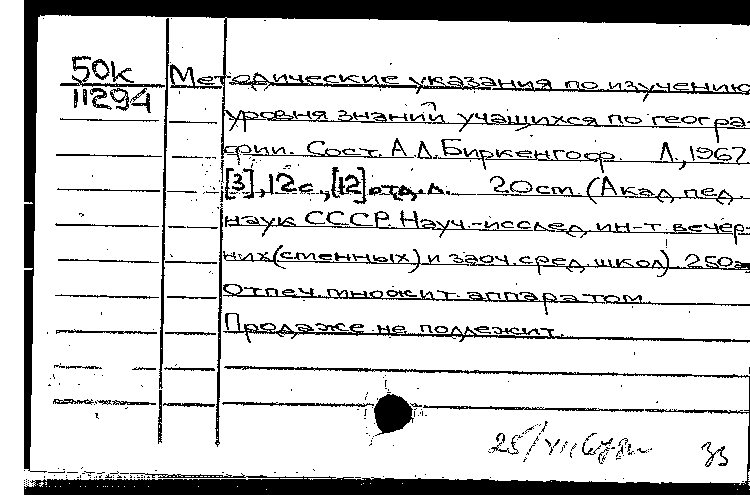 50к
11294
Методические указания по изучению
уровня знаний учащихся по геогра-
фии. Сост. А.Л.Биркенгоф. Л., 1967.
[3], 12с., [12] отд.л. 20см. (Акад. пед.
наук СССР. Науч.-исслед. ин-т вечер-
них(сменных) и заоч. сред. школ) 250э
Отпеч. множит. аппаратом.
Продаже не подлежит.
25/VII 67